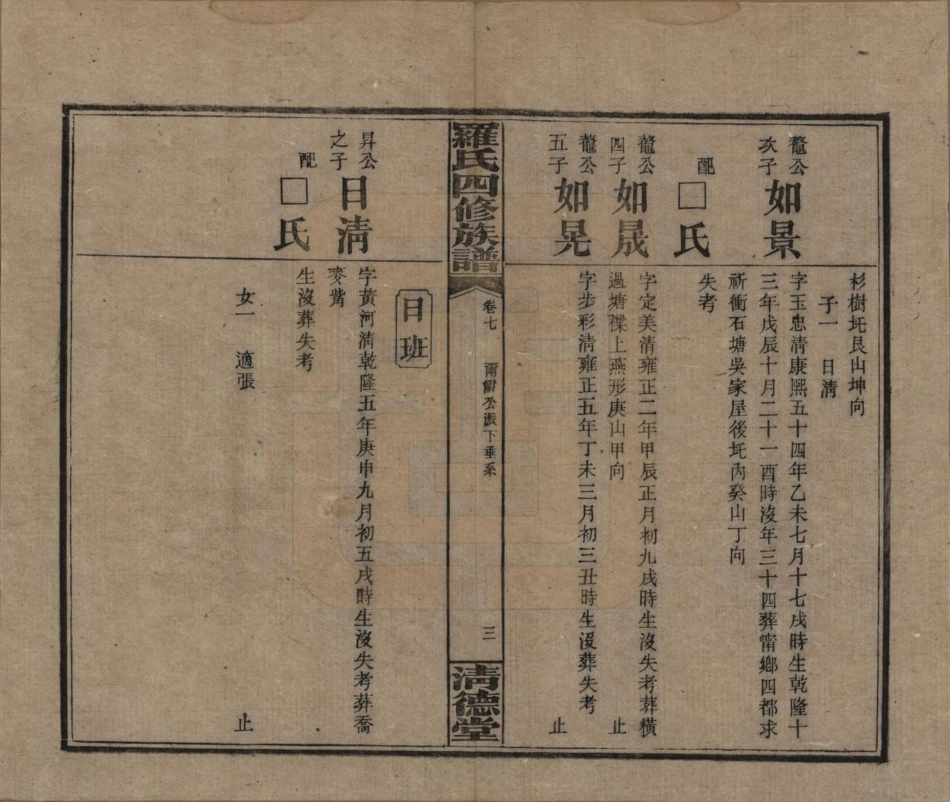 杉樹坵艮山坤向
子一　日淸
鼇公次子
如景
字玉忠淸康熙五十四年乙未七月十七戌時生乾隆十
三年戊辰十月二十一酉時沒年三十四葬甯鄉四都求
祈衝石塘吳家屋後坵內癸山丁向
配
□氏
失考
鼇公四子
如晟
字定美淸雍正二年甲辰正月初九戌時生沒失考葬橫
過塘磜上燕形庚山甲向
止
鼇公五子
如晃
字步彩淸雍正五年丁未三月初三丑時生沒葬失考
止
羅氏四修族譜
卷七
公派下垂系
三
淸德堂
日班
昇公之子
日淸
字黃河淸乾隆五年庚申九月初五戌時生沒失考葬喬
麥嵩
配
□氏
生沒葬失考
女一　適張
止